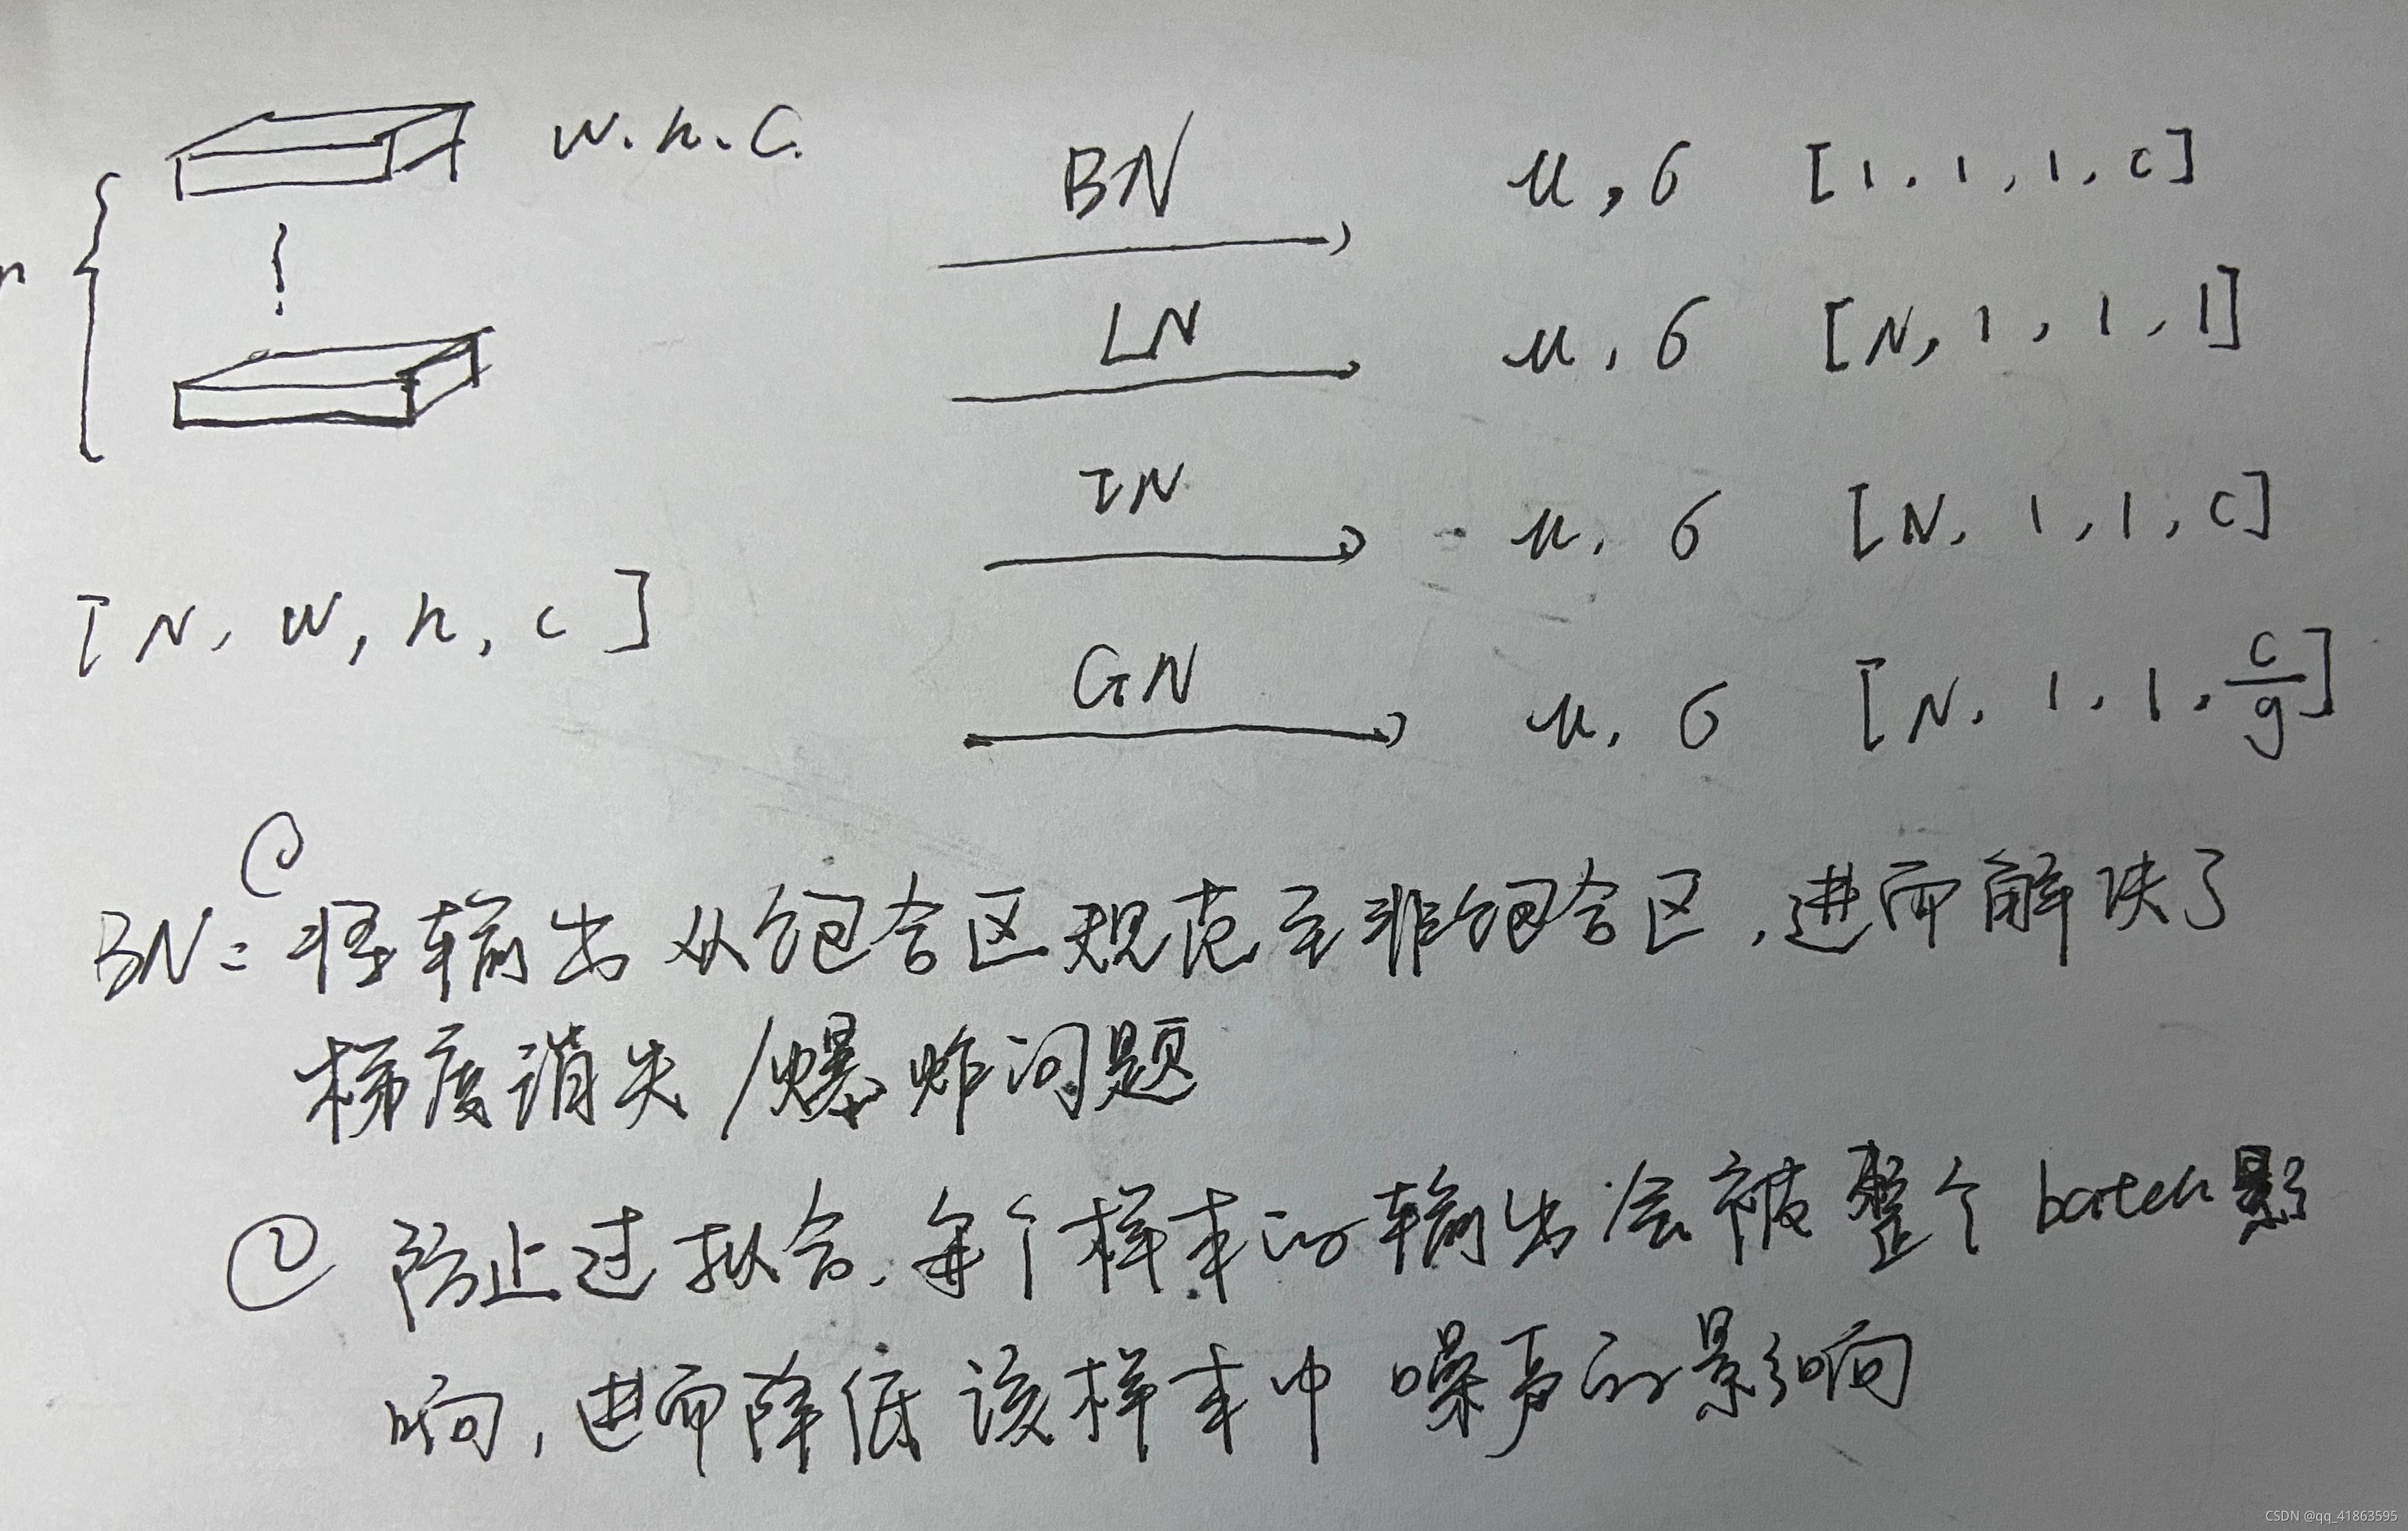 w.h.c.
n
[N, w, h, c]
BN μ, σ [1, 1, 1, c]
LN μ, σ [N, 1, 1, 1]
IN μ, σ [N, 1, 1, c]
GN μ, σ [N, 1, 1, c/g]
BN: ① 将输出从饱合区规范至非饱合区,进而解决了
梯度消失/爆炸问题
② 防止过拟合,每个样本的输出会被整个batch影
响,进而降低该样本中噪声的影响
CSDN @qq_41863595